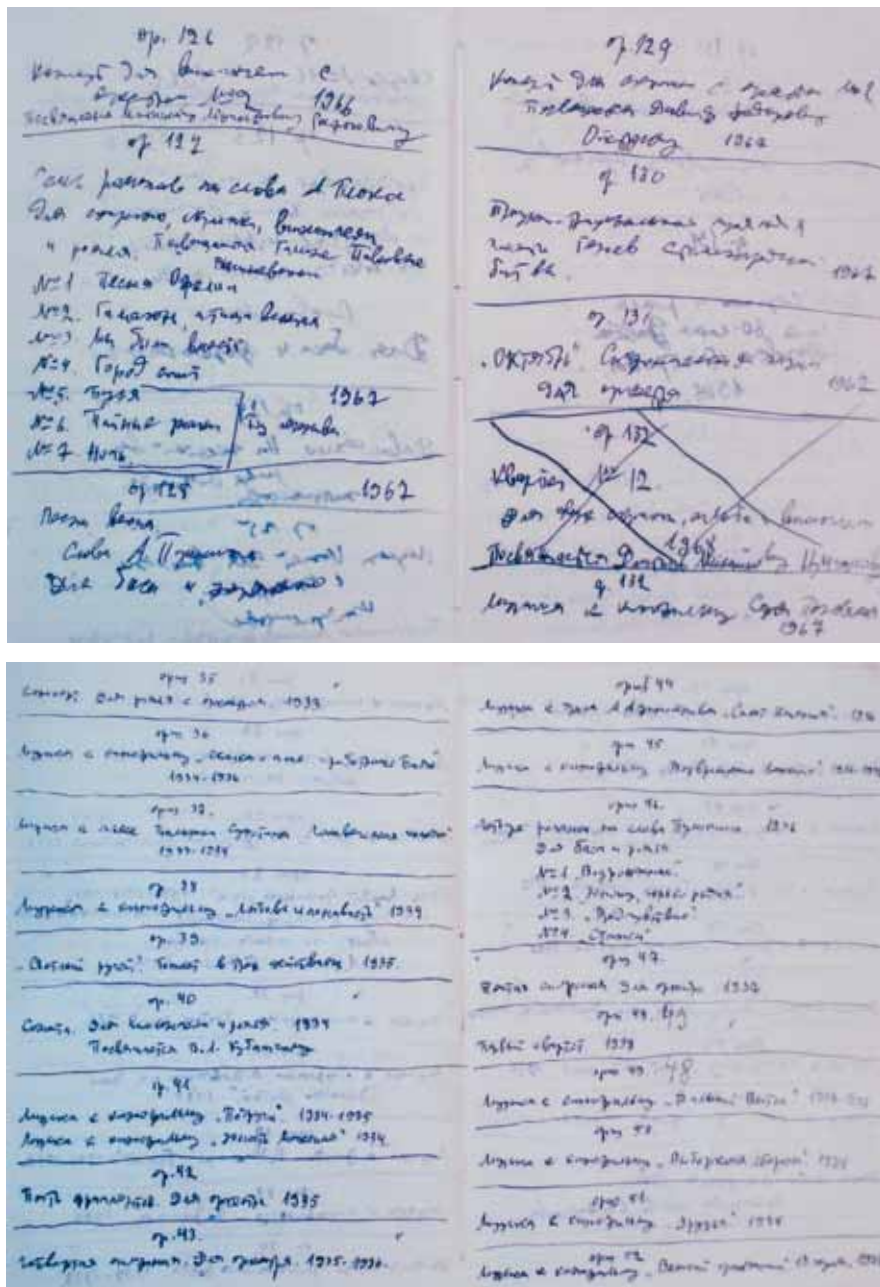 ор. 126
Концерт для виолончели с
оркестром № 2 1966
ор 127
Семь романсов на слова А Блока
Для сопрано, скрипки, виолончели
и рояля. Посвящается Галине Павловне
Вишневской
№ 1 Песня Офелии
№ 2. Гамаюн, птица вещая
№ 3 Мы были вместе
№ 4. Город спит
№ 5. Буря 1967
№ 6. Тайные знаки
№ 7 Ночь
ор. 128 1967
Весна весна
Слова А Пушкина
Для баса и
ор. 129
Концерт для скрипки с оркестром № 2
Посвящается Давиду Федоровичу
Ойстраху 1967
ор 130
1967
ор. 131
"Октябрь". Симфоническая поэма
для оркестра 1967
ор 132
Квартет № 12
для двух скрипок, альта и виолончели
1968
Посвящается Цыганову
ор. 132
Музыка к кинофильму "Софья Перовская
1967
опус 35
Концерт для рояля с оркестром. 1933
опус 36
Музыка к кинофильму "Сказка о попе и работнике Балде"
1934-1936
опус 37.
Музыка к пьесе "Человеческая комедия"
1933-1934
ор. 38
Музыка к кинофильму "Любовь и ненависть" 1934
ор. 39.
"Светлый ручей". Балет в трёх действиях 1935.
ор. 40
Соната. Для виолончели и рояля. 1934
Посвящается В.Л. Кубацкому
ор. 41
Музыка к кинофильму "Подруги" 1934-1935
Музыка к кинофильму "Юность Максима" 1934.
ор. 42
Пять фрагментов. Для оркестра 1935
ор. 43.
Четвертая симфония. Для оркестра. 1935-1936.
опус 44
Музыка к пьесе А Афиногенова "Салют Испания".
опус 45
Музыка к кинофильму "Возвращение Максима".
опус 46
Четыре романса на слова Пушкина.
Для баса и рояля
№ 1 "Возрождение"
№ 2
№ 3. "Предчувствие"
№ 4. "Стансы"
опус 47.
Пятая симфония для оркестра 1937
опус 49
Первый квартет 1938
опус 48
Музыка к кинофильму
опус 50
Музыка к кинофильму "Выборгская сторона".
опус 51.
Музыка к кинофильму "Друзья"
опус 52
Музыка к кинофильму "Великий гражданин"